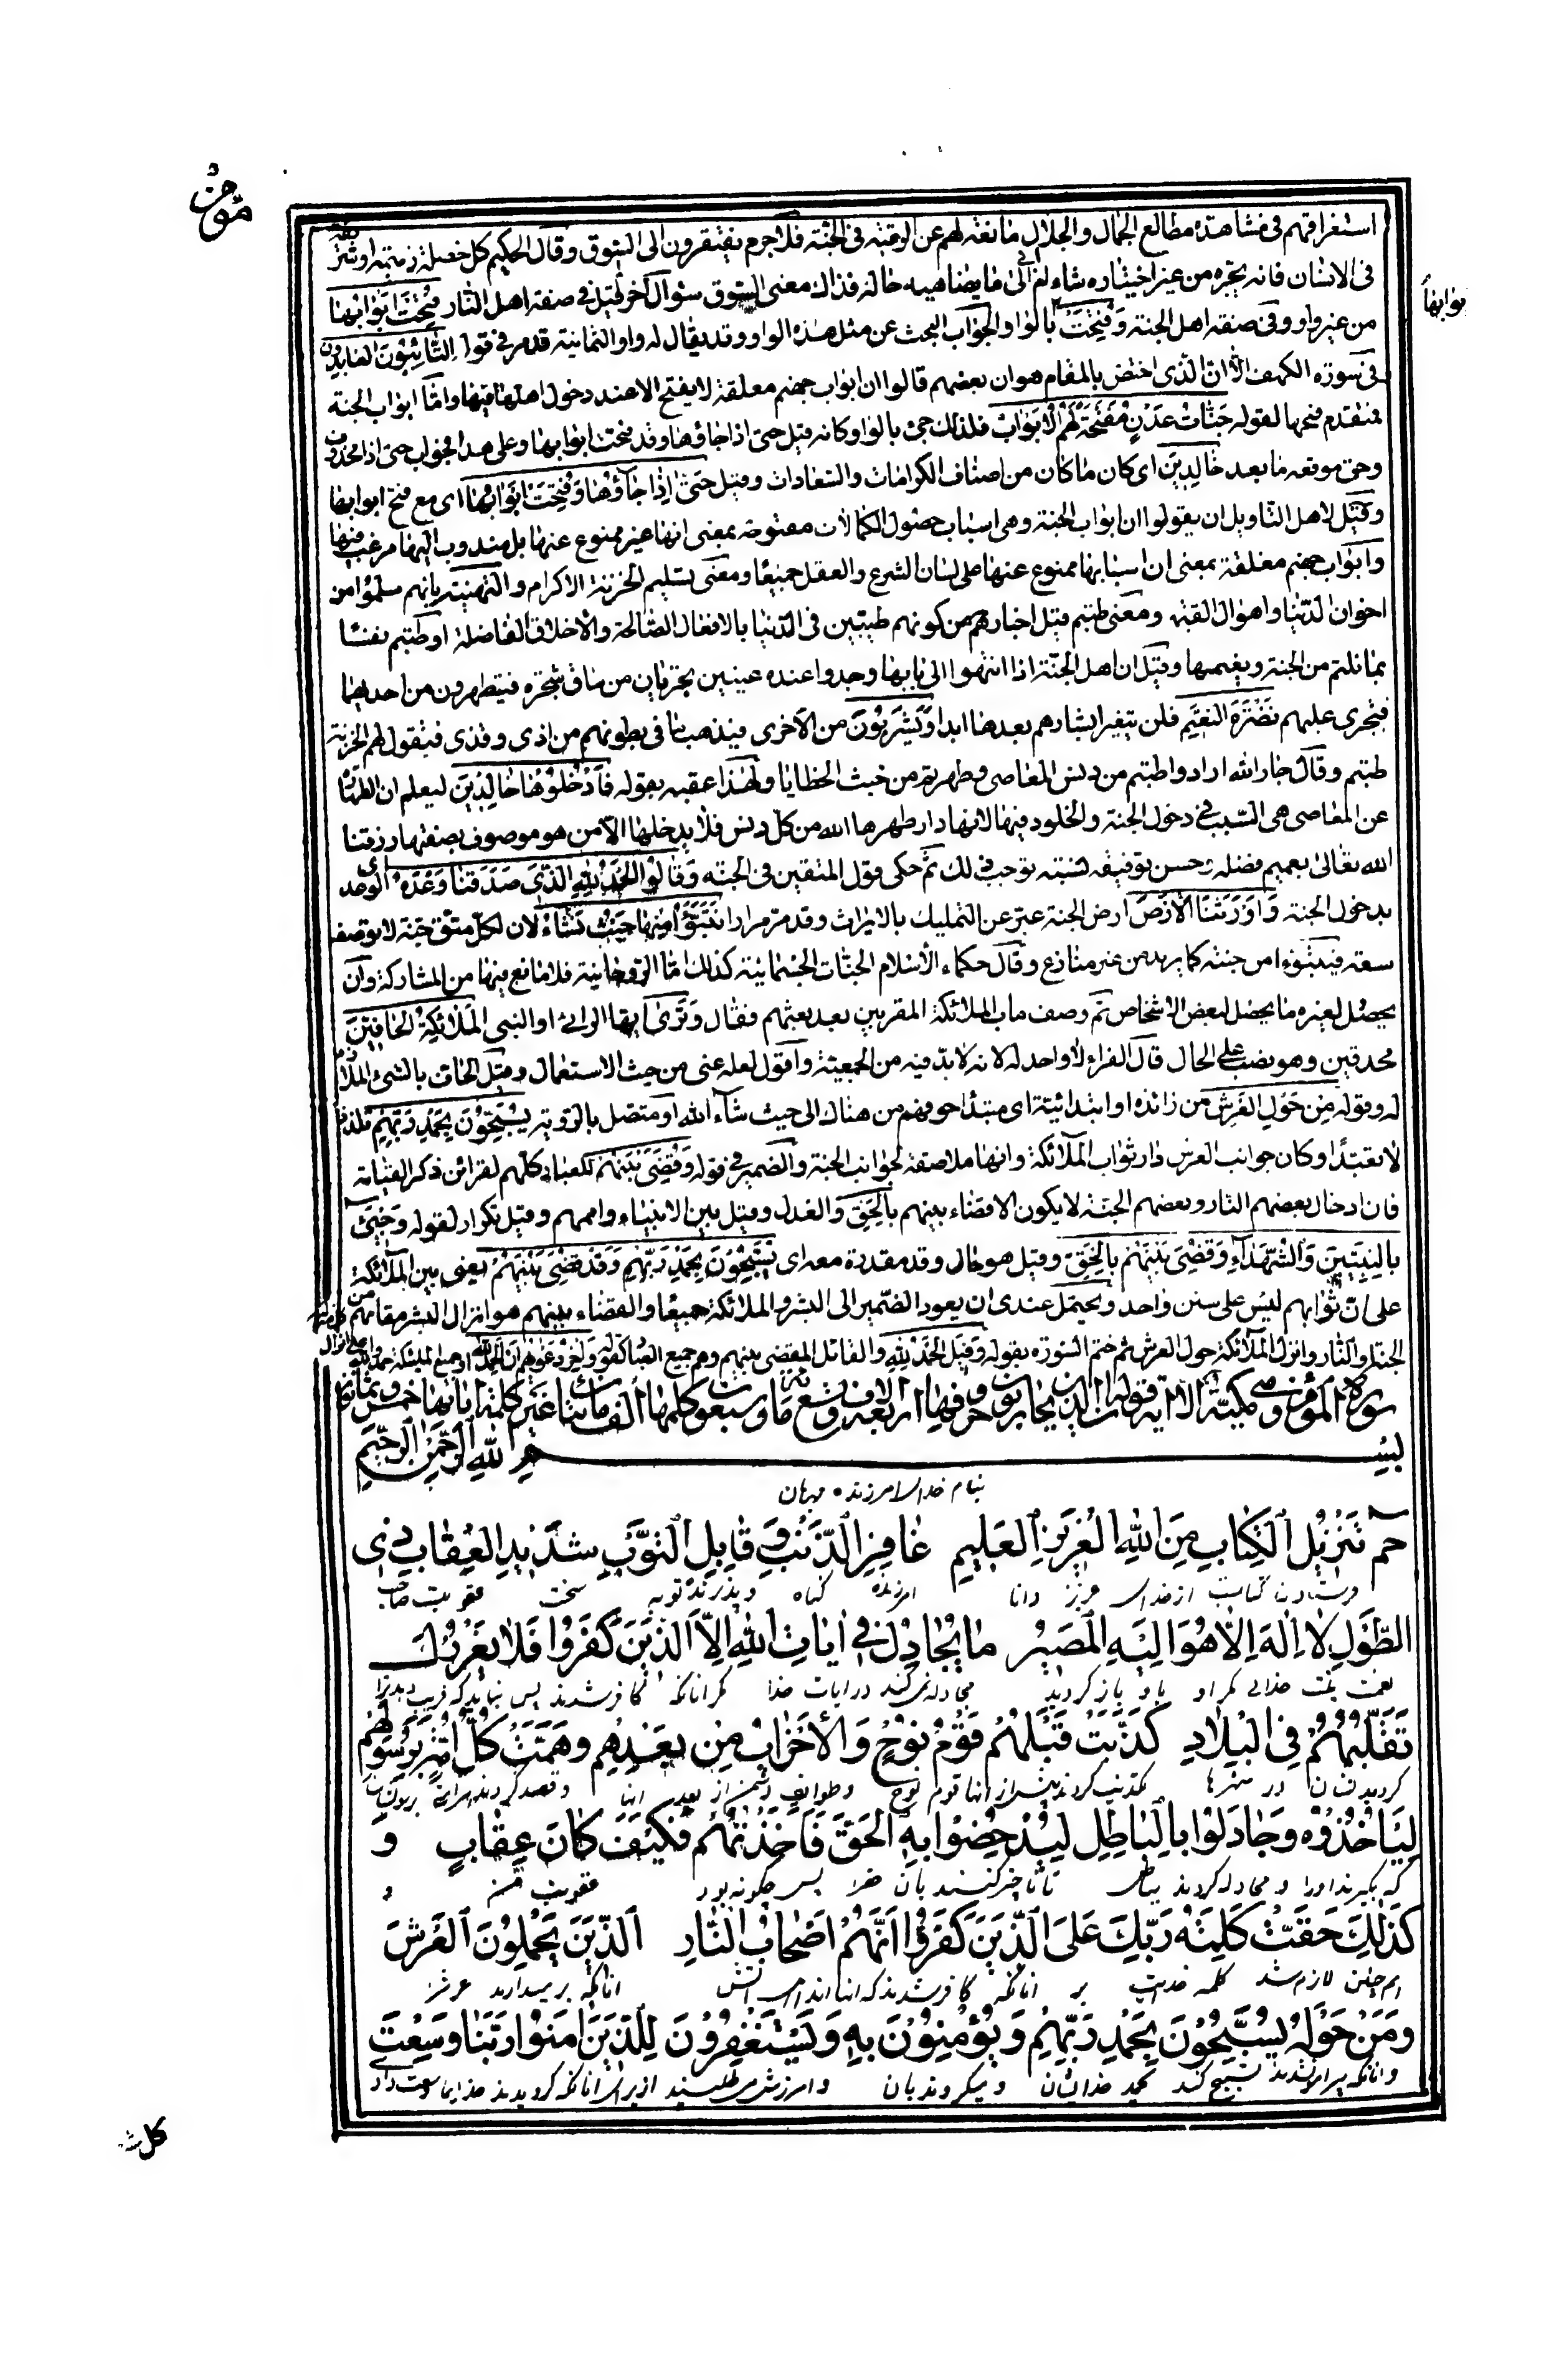 مؤمن
استغراقهم فى مشاهدة مطالع الجمال والجلال مانعة لهم عن الرغبة فى الجنة فلا جرم يفتقرون الى السوق وقال الحكيم كل خصلة ذميمة او شريفة
فى الانسان فانه يجره من غير اختياره شاء ام ابى الى ما يضاهيه حاله فذاك معنى السوق سؤال آخر لم قيل فى صفة اهل النار فُتِحَتْ أَبْوَابُهَا
أبوابها
من غير واو وفى صفة اهل الجنة وَفُتِحَتْ بالواو والجواب البحث عن مثل هذه الواو وقد يقال له واو الثمانية قد مر فى قوله التَّائِبُونَ الْعَابِدُونَ
فى سورة الكهف الا ان الذى اختص بالمقام هو ان بعضهم قالوا ان ابواب جهنم مغلقة لا يفتح الا عند دخول اهلها فيها واما ابواب الجنة
فمتقدم فتحها لقوله جَنَّاتُ عَدْنٍ مُفَتَّحَةً لَهُمُ الْأَبْوَابُ فلذلك جئ بالواو كانه قيل حتى اذا جاؤها وقد فتحت ابوابها وعلى هذا الجواب حتى اذا محذوف
وحق موقعه ما بعد خَالِدِينَ اى كان ما كان من اصناف الكرامات والسعادات وقيل حَتَّى إِذَا جَاؤُهَا وَفُتِحَتْ أَبْوَابُهَا اى مع فتح ابوابها
وقيل لاهل التاويل ان يقولوا ان ابواب الجنة وهى اسباب حصول الكمالات مفتوحة بمعنى انها غير ممنوع عنها بل مندوب اليها مرغب فيها
وابواب جهنم مغلقة بمعنى ان اسبابها ممنوع عنها على لسان الشرع والعقل جميعا ومعنى تسليم الخزنة الاكرام والتهنية بانهم سلموا من
احزان الدنيا واهوال القيمة ومعنى طبتم قيل اخبارهم من كونهم طيبين فى الدنيا بالافعال الصالحة والاخلاق الفاضلة او طبتم نفسا
بما نلتم من الجنة ونعيمها وقيل ان اهل الجنة اذا انتهوا الى بابها وجدوا عنده عينين يجريان من ساق شجرة فيتطهرون من احديهما
فيجرى عليهم نَضْرَةَ النَّعِيمِ فلن يتغير ابشارهم بعدها ابدا وَيَشْرَبُونَ من الاخرى فيذهب ما فى بطونهم من اذى وقذى فيقول لهم الخزنة
طبتم وقال جار الله ارادوا طبتم من دنس المعاصى وطهرتم من خبث الخطايا ولهذا عقبه بقوله فَادْخُلُوهَا خَالِدِينَ ليعلم ان الطهارة
عن المعاصى هى السبب فى دخول الجنة والخلود فيها لانها دار طهرها الله من كل دنس فلا يدخلها الا من هو موصوف بصفتها رزقنا
الله تعالى بعميم فضله وحسن توفيقه نسبة توجب ذلك ثم حكى قول المتقين فى الجنة وَقَالُوا الْحَمْدُ لِلَّهِ الَّذِي صَدَقَنَا وَعْدَهُ اى الوعد
بدخول الجنة وَأَوْرَثَنَا الْأَرْضَ ارض الجنة عبر عن التمليك بالايراث وقد مر مرارا نَتَبَوَّأُ مِنْهَا حَيْثُ نَشَاءُ لان لكل متق جنة لا يوصف
سعة فيتبوء من جنته كما يريد من غير منازع وقال حكماء الاسلام الجنات الجسمانية كذلك اما الروحانية فلا مانع فيها من المشاركة وان
يحصل لغيره ما يحصل لبعض الاشخاص ثم وصف ماب الملائكة المقربين بعد بعثهم فقال وَتَرَى ايها الرائى او النبى الْمَلَائِكَةَ الْحَافِّينَ
محدقين وهو نصب على الحال قال الفراء لا واحد له لانه لا بد فيه من الجمعية واقول لعله عنى من حيث الاستعمال وقيل الحاف بالشئ الملازم
له وقوله مِنْ حَوْلِ الْعَرْشِ من زائدة او ابتدائية اى مبتدا حوفهم من هناك الى حيث شاء الله او متصل بالرؤية يُسَبِّحُونَ بِحَمْدِ رَبِّهِمْ تلذذا
لا تعبدا وكان جوانب العرش دار ثواب الملائكة وانها ملاصقة لجوانب الجنة والضمير فى قوله وَقُضِيَ بَيْنَهُمْ للعباد كلهم لقرائن ذكر القيامة
فان ادخال بعضهم النار وبعضهم الجنة لا يكون الا قضاء بينهم بِالْحَقِّ والعدل وقيل بين الانبياء واممهم وقيل تكرار لقوله وَجِيءَ
بِالنَّبِيِّينَ وَالشُّهَدَاءِ وَقُضِيَ بَيْنَهُمْ بِالْحَقِّ وقيل هو حال وقد مقدرة معه اى يُسَبِّحُونَ بِحَمْدِ رَبِّهِمْ وَقَدْ قُضِيَ بَيْنَهُمْ يعنى بين الملائكة
على ان ثوابهم ليس على سنن واحد ويحتمل عندى ان يعود الضمير الى البشر والملائكة جميعا والقضاء بينهم هو انزال البشر مقامهم من
الجنة والنار وانزال الملائكة حول العرش ثم ختم السورة بقوله وَقِيلَ الْحَمْدُ لِلَّهِ والقائل المقضى بينهم وهم جميع العباد كقوله وَآخِرُ دَعْوَاهُمْ أَنِ الْحَمْدُ لِلَّهِ او جميع الملئكة
سورة المؤمن وهى مكية الا اية قوله ان الذين يجادلون وحروفها اربعة الاف وتسع ماة وستون كلمها الف ومائتا غير كلمة اياتها خمس وثمانون
بِسْمِ اللَّهِ الرَّحْمَنِ الرَّحِيمِ
بنام خداى امرزنده مهربان
حم تَنْزِيلُ الْكِتَابِ مِنَ اللَّهِ الْعَزِيزِ الْعَلِيمِ غَافِرِ الذَّنْبِ وَقَابِلِ التَّوْبِ شَدِيدِ الْعِقَابِ ذِي
فرستادن كتابت از خداى عزيز دانا امرزنده كناه و پذيرنده توبه سخت عقوبت صاحب
الطَّوْلِ لَا إِلَهَ إِلَّا هُوَ إِلَيْهِ الْمَصِيرُ مَا يُجَادِلُ فِي آيَاتِ اللَّهِ إِلَّا الَّذِينَ كَفَرُوا فَلَا يَغْرُرْكَ
نعمت نيست خدائى مكر او باو بازكرديد مجادله نمى كند در ايات خدا مكر انانكه كافر شدند پس نبايد كه فريب دهد ترا
تَقَلُّبُهُمْ فِي الْبِلَادِ كَذَّبَتْ قَبْلَهُمْ قَوْمُ نُوحٍ وَالْأَحْزَابُ مِنْ بَعْدِهِمْ وَهَمَّتْ كُلُّ أُمَّةٍ بِرَسُولِهِمْ
كرديدنشان در شهرها تكذيب كردند پيش از انها قوم نوح و طوايف دشمن از بعد انها و قصد كردند هر امتى برسولشان
لِيَأْخُذُوهُ وَجَادَلُوا بِالْبَاطِلِ لِيُدْحِضُوا بِهِ الْحَقَّ فَأَخَذْتُهُمْ فَكَيْفَ كَانَ عِقَابِ وَ
كه بگيرند او را و مجادله كردند بباطل تا ناچيز كنند بان حق را پس چكونه بود عقوبت من و
كَذَلِكَ حَقَّتْ كَلِمَةُ رَبِّكَ عَلَى الَّذِينَ كَفَرُوا أَنَّهُمْ أَصْحَابُ النَّارِ الَّذِينَ يَحْمِلُونَ الْعَرْشَ
همچنين لازم شد كلمه خدايت بر انانكه كافر شدند كه انها اند اهل اتش انانكه بر ميدارند عرش
وَمَنْ حَوْلَهُ يُسَبِّحُونَ بِحَمْدِ رَبِّهِمْ وَيُؤْمِنُونَ بِهِ وَيَسْتَغْفِرُونَ لِلَّذِينَ آمَنُوا رَبَّنَا وَسِعْتَ
وانانكه پيرامونند تسبيح كنند بحمد خدايشان و ميكروند بان و امرزش مى طلبند از براى انانكه كرويدند خدايا وسعت داد
كل